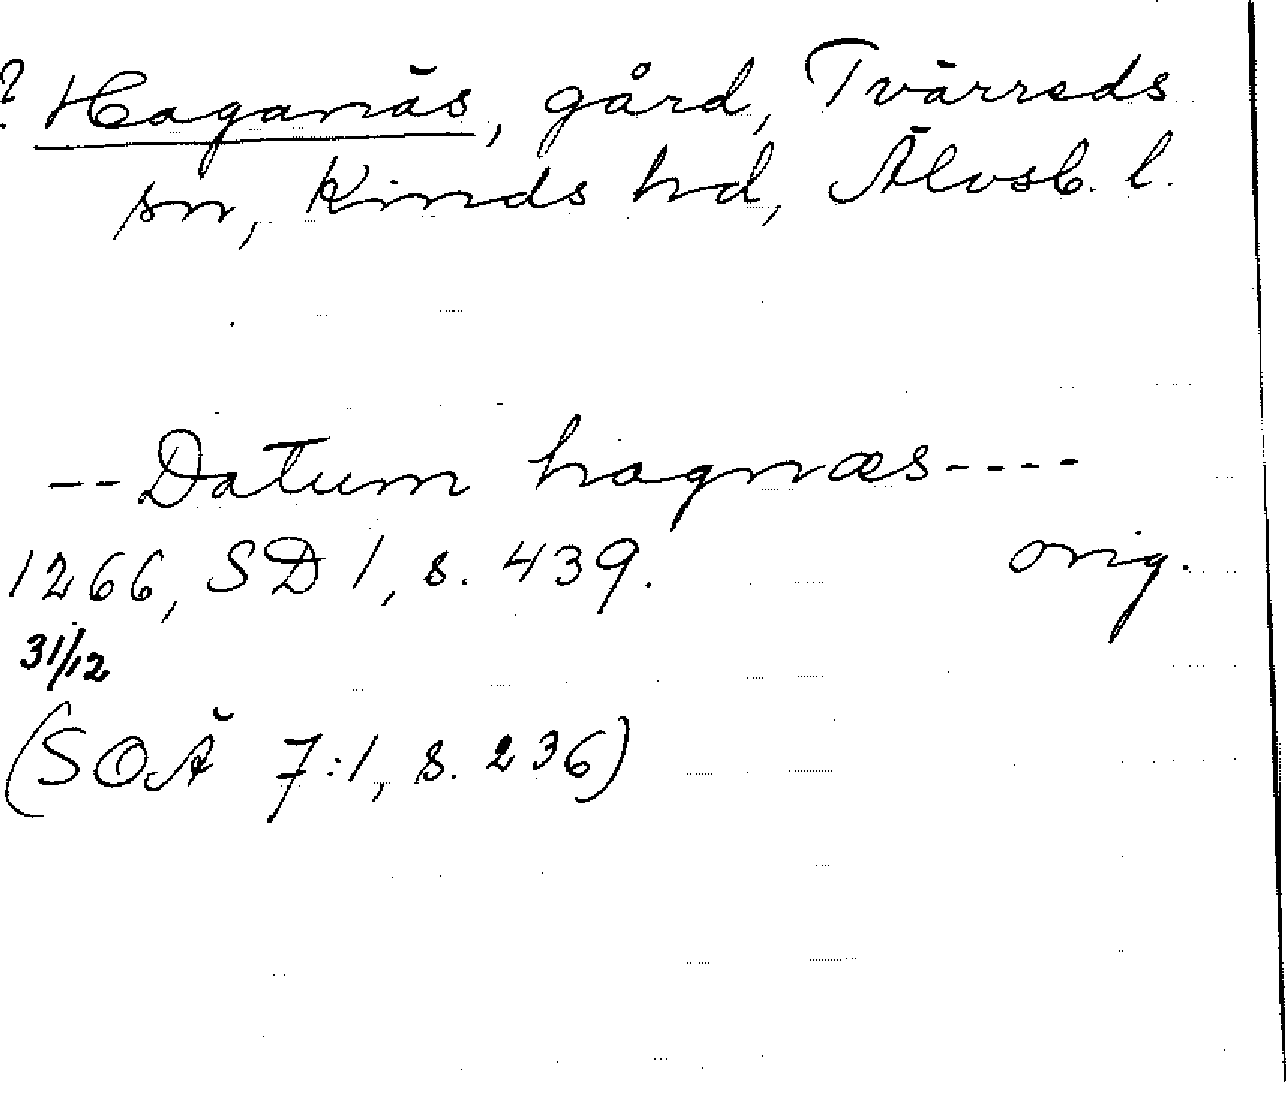 ? Haganäs, gård, Tvärreds
sn, Kinds hd, Älvsb. l.
--Datum hagnæs----
1266, SD 1, s. 439. orig.
31/12
(SOÄ 7:1, s. 236)